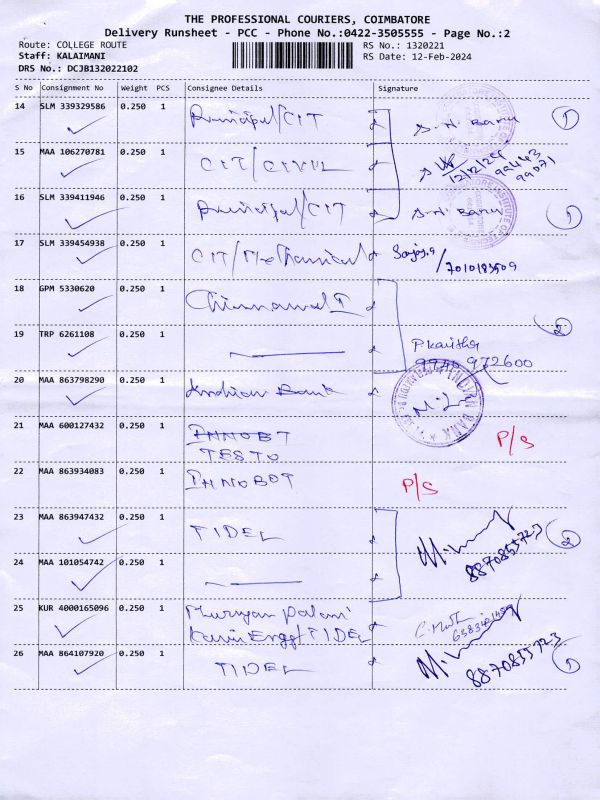 THE PROFESSIONAL COURIERS, COIMBATORE
Delivery Runsheet - PCC - Phone No.:0422-3505555 - Page No.:2
Route: COLLEGE ROUTE RS No.: 1320221
Staff: KALAIMANI RS Date: 12-Feb-2024
DRS No.: DCJB132022102
S No Consignment No Weight PCS Consignee Details Signature
14 SLM 339329586 0.250 1 Principal/CIT S.H. Banu 1
15 MAA 106270781 0.250 1 CIT/CIVIL 12/2/24
16 SLM 339411946 0.250 1 Principal/CIT S.H Banu 1
17 SLM 339454938 0.250 1 CIT/Mechanical
18 GPM 5330620 0.250 1
19 TRP 6261108 0.250 1 972600 2
20 MAA 863798290 0.250 1 Indian Bank INDIAN BANK
21 MAA 600127432 0.250 1 P/S
22 MAA 863934083 0.250 1 P/S
23 MAA 863947432 0.250 1 TIDEL 8870855723 2
24 MAA 101054742 0.250 1
25 KUR 4000165096 0.250 1 TIDEL
26 MAA 864107920 0.250 1 TIDEL 8870855723 1